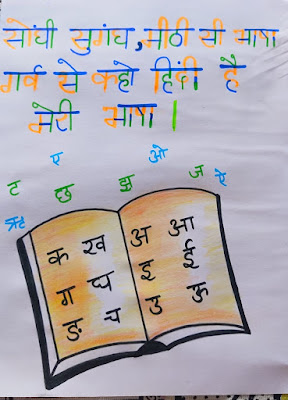 सोंधी सुगंध, मीठी सी भाषा
गर्व से कहो हिंदी है
मेरी भाषा।
ए ओ
ट छ झ ज ऐ
ऋ
क ख अ आ
ग घ इ ई
ङ च उ ऊ